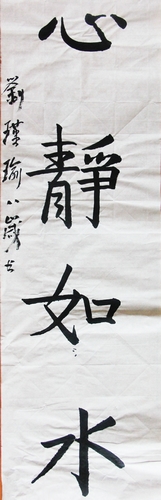 心靜如水
劉瑾瑜八歲书